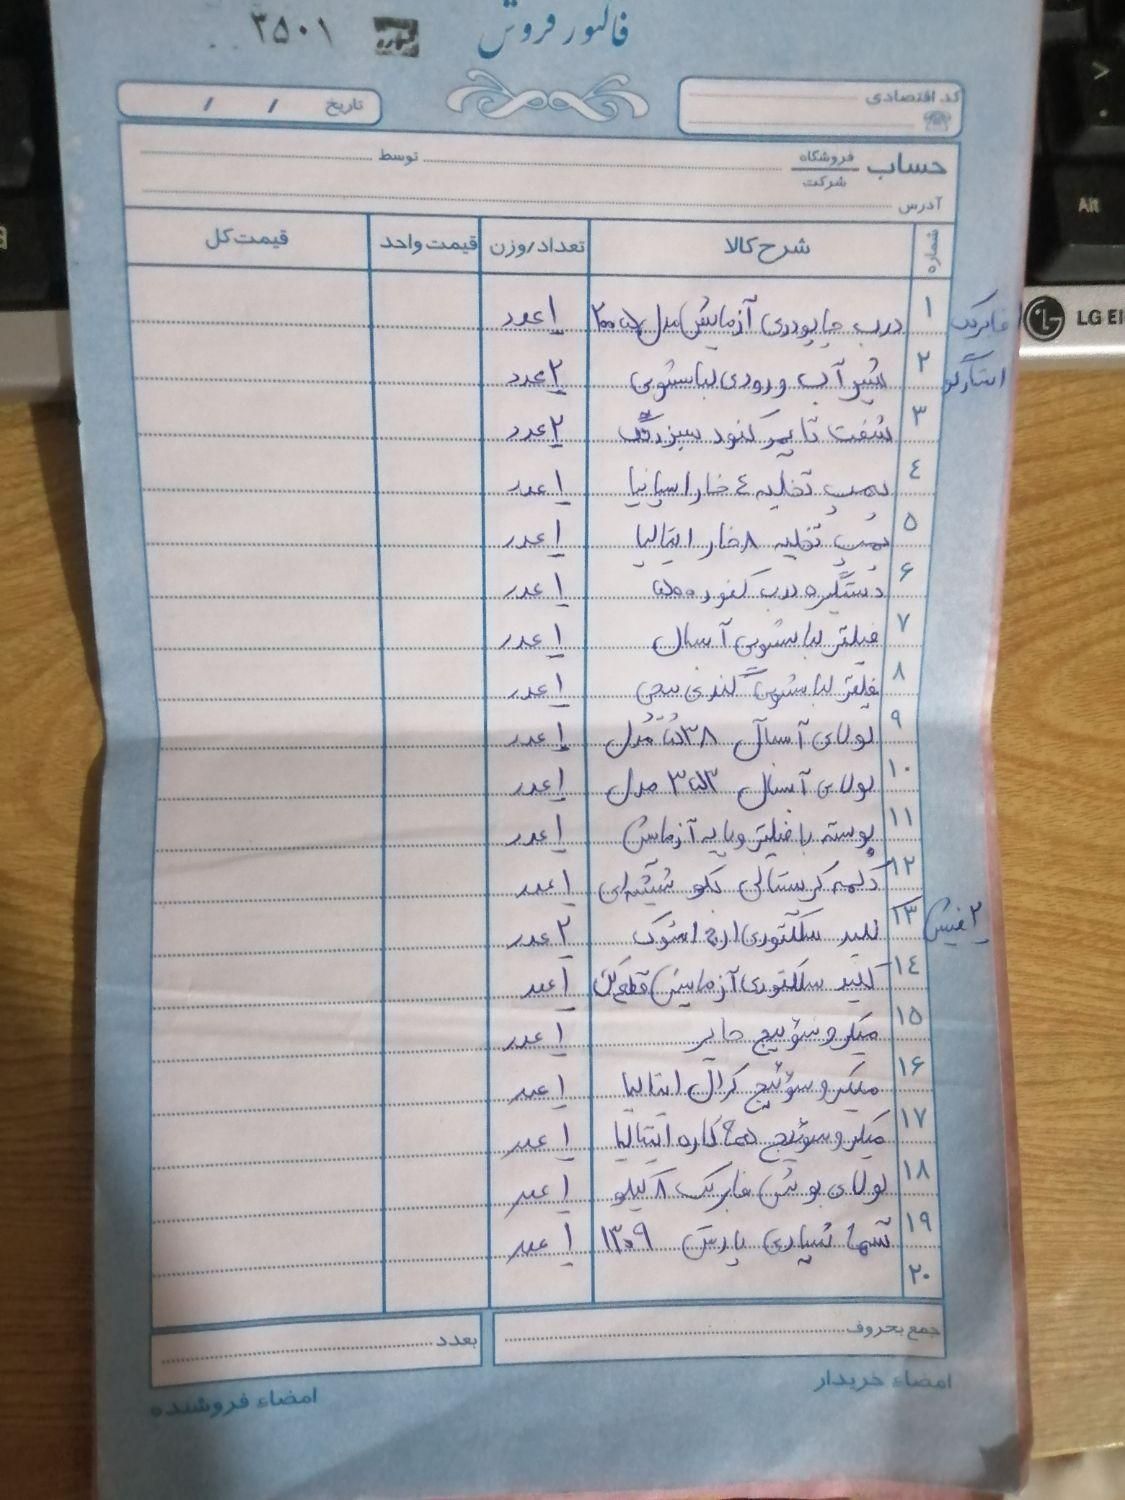 ۳۵۰۱
فاکتور فروش
کد اقتصادی
تاریخ / /
حساب فروشگاه شرکت توسط
آدرس
شماره شرح کالا تعداد/وزن قیمت واحد قیمت کل
۱ درب جا پودری آزمایش مدل ۱ عدد فابریک
۲ شیر آب ورودی لباسشویی ۲ عدد
۳ شفت تایمر کنود سبز رنگ ۲ عدد
۴ پمپ تخلیه ۴ خار اسپانیا ۱ عدد
۵ پمپ تخلیه ۸ خار ایتالیا ۱ عدد
۶ دستگیره درب کنود ۵۰۰ ۱ عدد
۷ فیلتر لباسشویی آبسال ۱ عدد
۸ فیلتر لباسشویی کندی پیچی ۱ عدد
۹ لولای آبسال مدل ۱ عدد
۱۰ لولای آبسال مدل ۱ عدد
۱۱ پوسته با فیلتر و پایه آزمایش ۱ عدد
۱۲ دکمه کریستالی بکو شیشه‌ای ۱ عدد
۱۳ کلید سلکتوری ارج استوک ۲ عدد ۲ فیش
۱۴ کلید سلکتوری آزمایش ۱ عدد
۱۵ میکروسوئیچ حایر ۱ عدد
۱۶ میکروسوئیچ کرال ایتالیا ۱ عدد
۱۷ میکروسوئیچ همه کاره ایتالیا ۱ عدد
۱۸ لولای بوش فابریک ۸ کیلو ۱ عدد
۱۹ پارس ۱۳۰۹ ۱ عدد
۲۰
جمع بحروف بعدد
امضاء خریدار امضاء فروشنده
LG
Alt